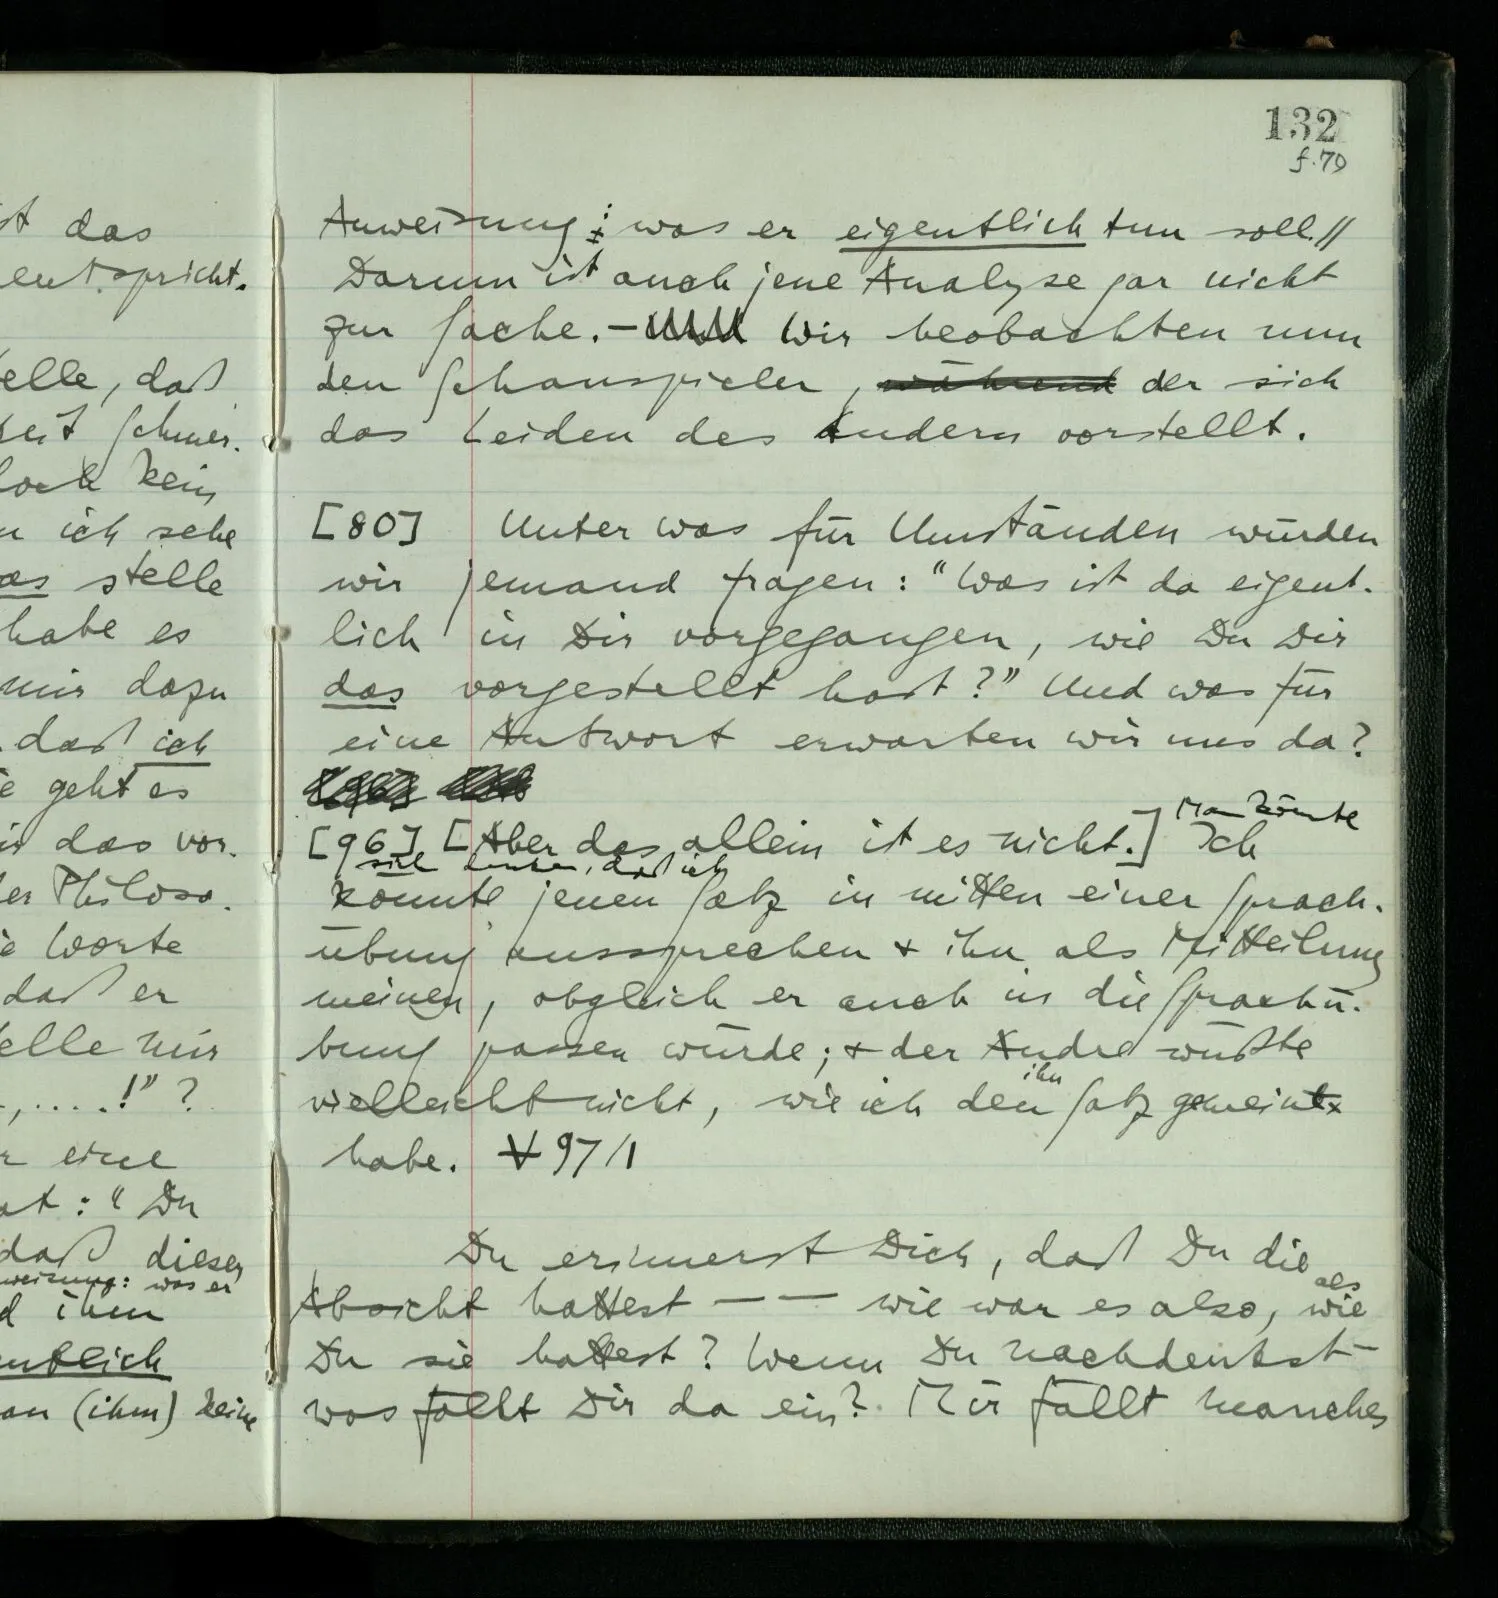 st das
entspricht.
elle, daß
zeit Schmer-
doch kein
n ich sehe
as stelle
habe es
mir dazu
daß ich
ie geht es
ir das vor.
er Philoso-
ie Worte
daß er
elle mir
-,.....!" ?
r eine
at: "Du
daß dieser
weisung: was er
d ihm
entlich
an (ihm) keine
132
f.70
Anweisung: was er eigentlich tun soll.//
Darum ist auch jene Analyse gar nicht
zur Sache. – Und Wir beobachten nun
den Schauspieler, während der sich
das Leiden des Andern vorstellt.
[80] Unter was für Umständen würden
wir jemand fragen: "Was ist da eigent-
lich in Dir vorgegangen, wie Du Dir
das vorgestellt hast?" Und was für
eine Antwort erwarten wir uns da?
[96]
Man könnte
[96] [Aber das allein ist es nicht.] Ich
sich denken, daß ich
könnte jenen Satz in mitten einer Sprach-
übung aussprechen & ihn als Mitteilung
meinen, obgleich er auch in die Sprachü-
bung passen würde; & der Andre wüßte
ihn
vielleicht nicht, wie ich den Satz gemeint
habe. V 97/1
Du erinnerst Dich, daß Du die
als
Absicht hattest — — wie war es also, wie
Du sie hattest? Wenn Du nachdenkst –
was fällt Dir da ein? Mir fällt manches